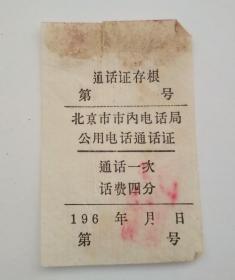 通话证存根
第 号
北京市市内电话局
公用电话通话证
通话一次
话费四分
196 年 月 日
第 号